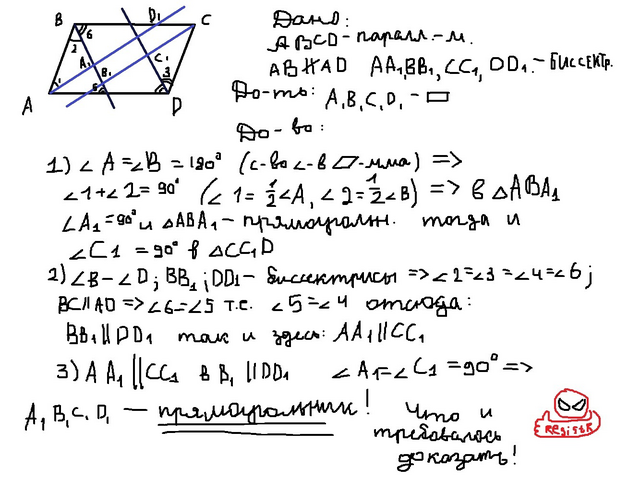 B D₁ C
6
2
A₁ C₁
B₁ 3
1 5
A D
Дано:
ABCD - паралл.-м.
AB∦AD AA₁BB₁, CC₁, DD₁ - биссектр.
До-ть: A₁B₁C₁D₁ - ▭
До-во:
1) ∠A=∠B = 180° (с-во ∠-в ▱-мма) =>
∠1+∠2= 90° (∠1= 1/2∠A, ∠2= 1/2∠B) => в △ABA₁
∠A₁=90° и △ABA₁ - прямоугольн. тогда и
∠C1 = 90° в △CC₁D
2) ∠B-∠D; BB₁; DD1 - биссектрисы =>∠2=∠3=∠4=∠6;
BC∥AD =>∠6=∠5 т.е. ∠5=∠4 отсюда:
BB₁∥DD₁ так и здесь: AA₁∥CC₁
3) AA₁∥CC₁ BB₁∥DD₁ ∠A₁=∠C₁ =90° =>
A₁B₁C₁D₁ — прямоугольник!
Что и
требовалось
доказать!
Registr